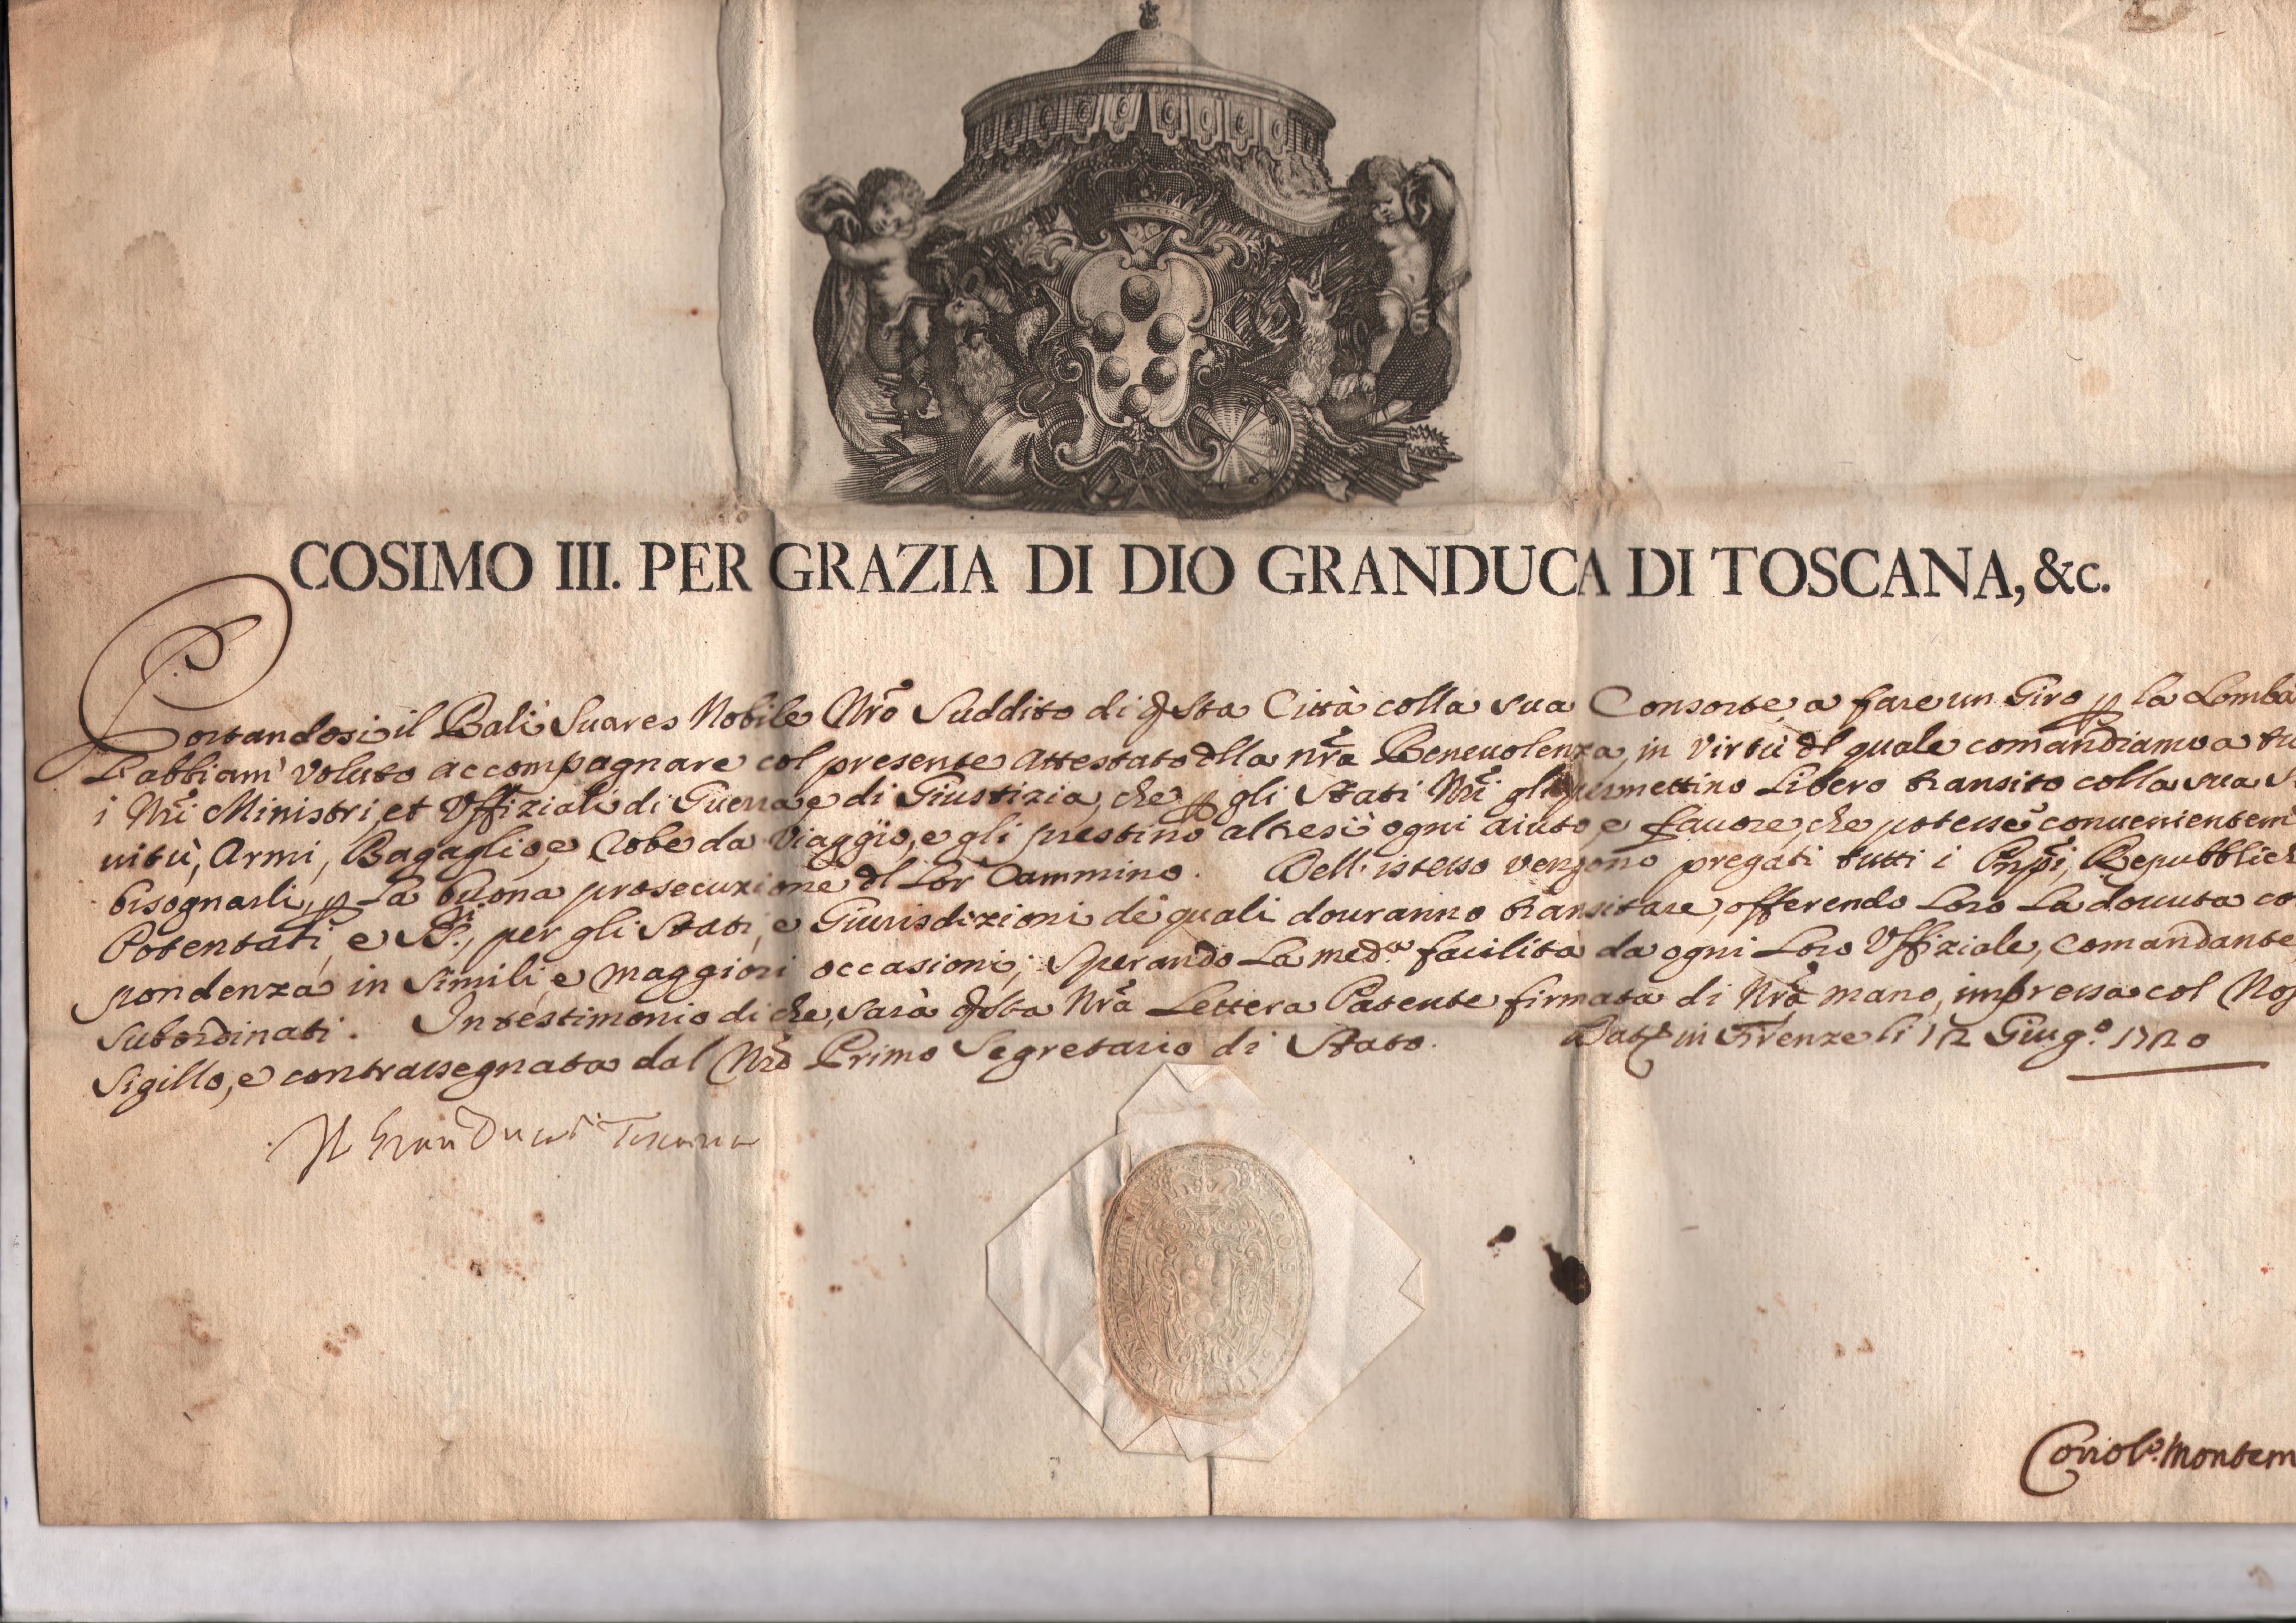 COSIMO III. PER GRAZIA DI DIO GRANDUCA DI TOSCANA, &c.
Portandosi il Balì Suares Nobile Nrõ Suddito di qsta Città colla sua Consorte a fare un Giro p la Lomba
L'abbiam' voluto accompagnare col presente Attestato dlla nrã Beneuolenza, in virtù dl quale comandiamo a tu
i Nrĩ Ministri, et Vffiziali di Guerra, e di Giustizia, che p gli Stati Nrĩ gli permettino Libero transito colla sua S
uitù, Armi, Bagaglio, e Robe da Viaggio, e gli prestino altresì ogni aiuto, e fauore, che potesse conuenientem
bisognarli, p La buona prosecuzione dl Lor Cammino. Dell'istesso vengono pregati tutti i Pnpi, Repubblich
Potentati, e SS.ri, per gli Stati, e Giurisdizioni de' quali douranno transitare, offerendo Loro La douuta co
pondenza in simili, e maggiori occasioni; Sperando La med.a facilità da ogni Loro Vffiziale, Comandante,
Subordinati. In testimonio di che, sarà qsta Nrã Lettera Patente firmata di Nrã mano, impressa col Nos
Sigillo, e contrassegnata dal Nrõ Primo Segretario di Stato. Dat in Firenze li 12 Giug.o 1720
Il Gran Duca di Toscana
Coriol.o Montem